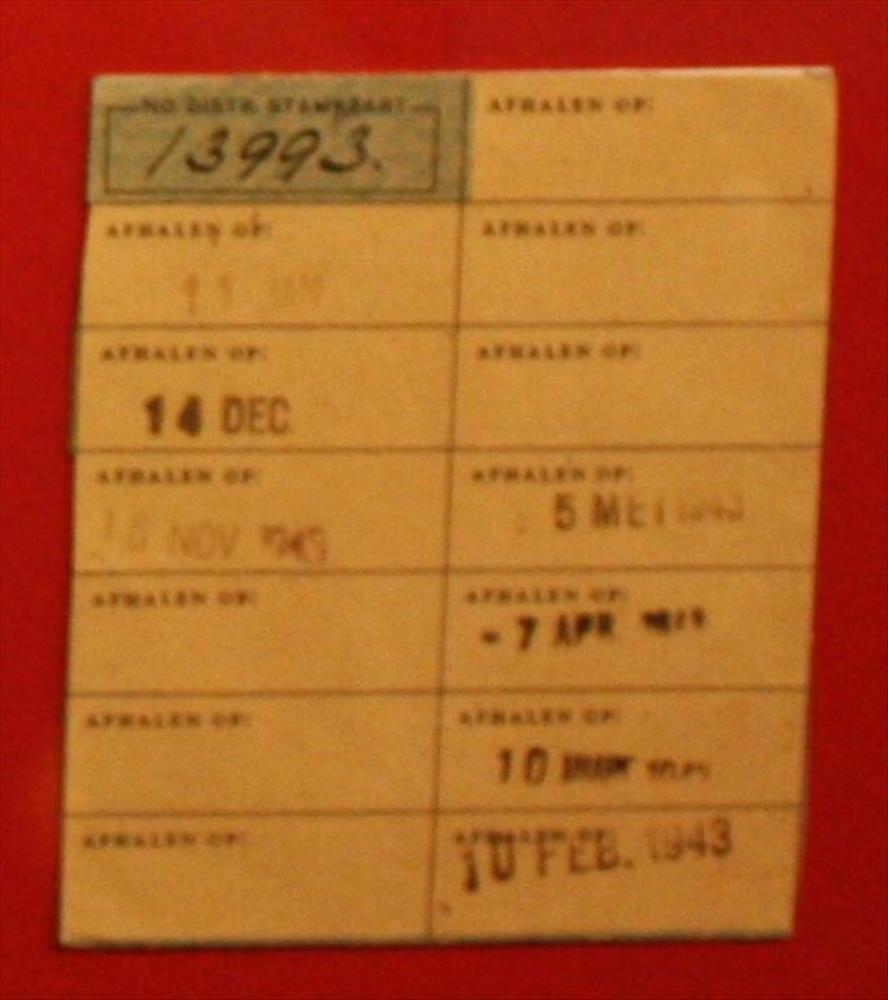 NO DISTR. STAMKAART
13993.
AFHALEN OP:
AFHALEN OP:
11 JAN
AFHALEN OP:
14 DEC
AFHALEN OP:
18 NOV 1943
AFHALEN OP:
AFHALEN OP:
AFHALEN OP:
AFHALEN OP:
AFHALEN OP:
AFHALEN OP:
5 MEI 1943
AFHALEN OP:
- 7 APR
AFHALEN OP:
10
AFHALEN OP:
10 FEB. 1943